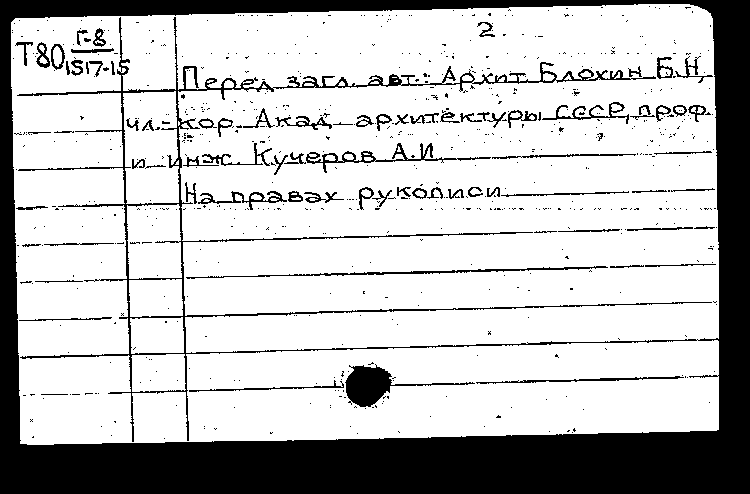 2
Т80 Г-8
1517-15
Перед загл. авт.: Архит Блохин Б.Н,
чл.-кор. Акад. архитектуры СССР, проф.
и инж. Кучеров А.И.
На правах рукописи.